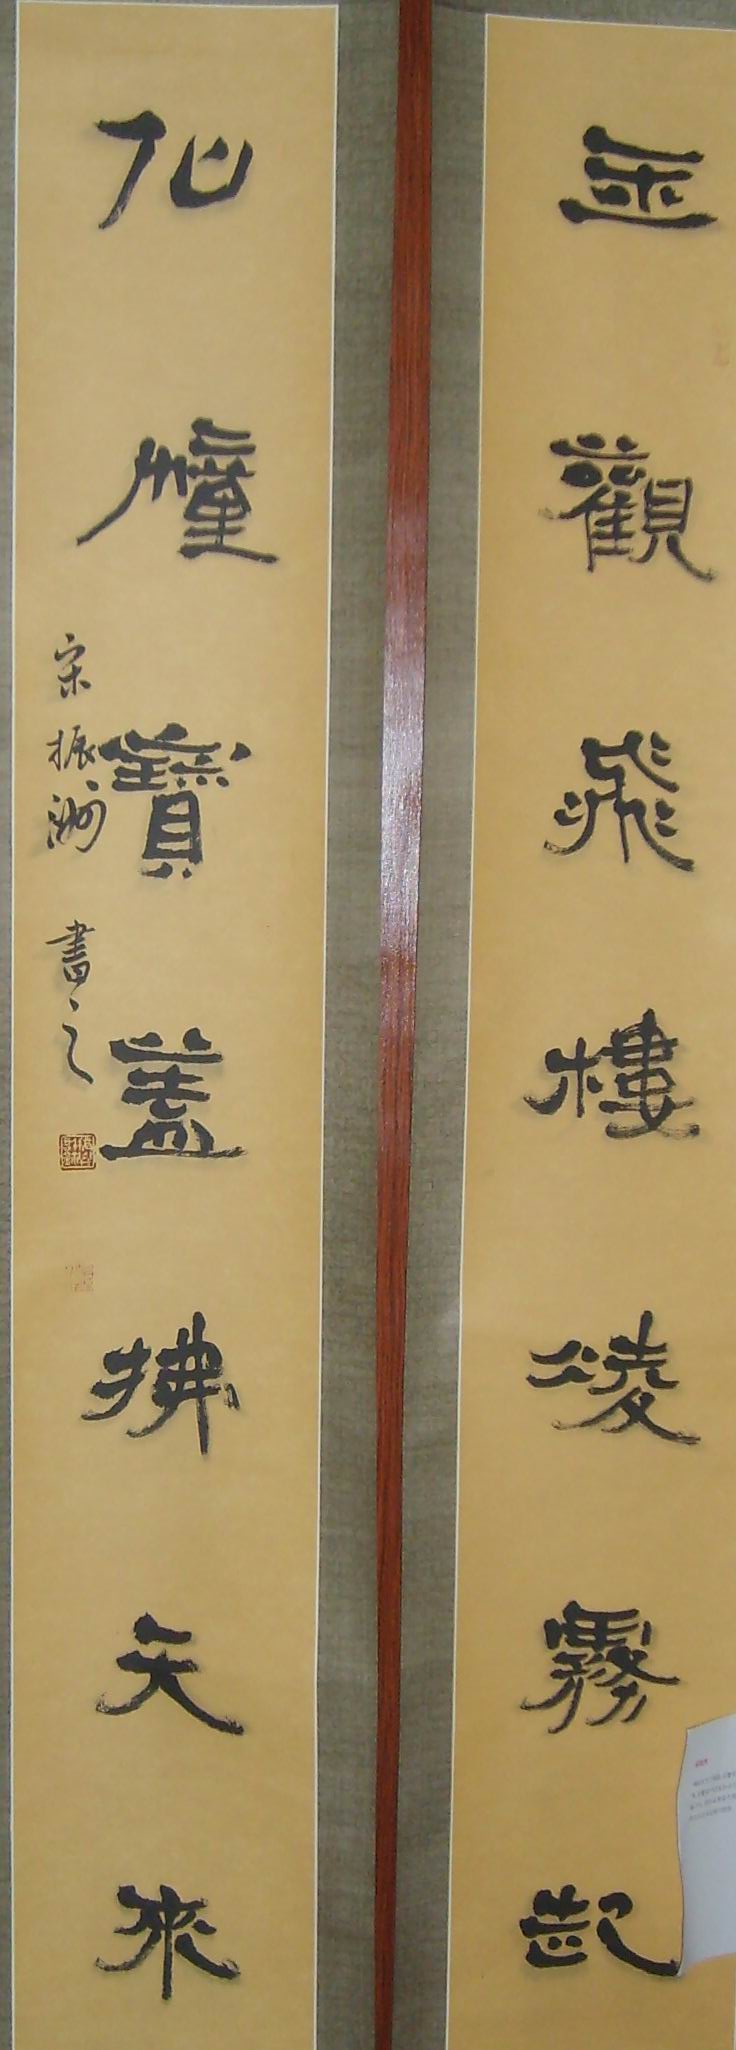 玉觀飛樓淩霧起
仙幢寶蓋拂天來
宋振洲書之